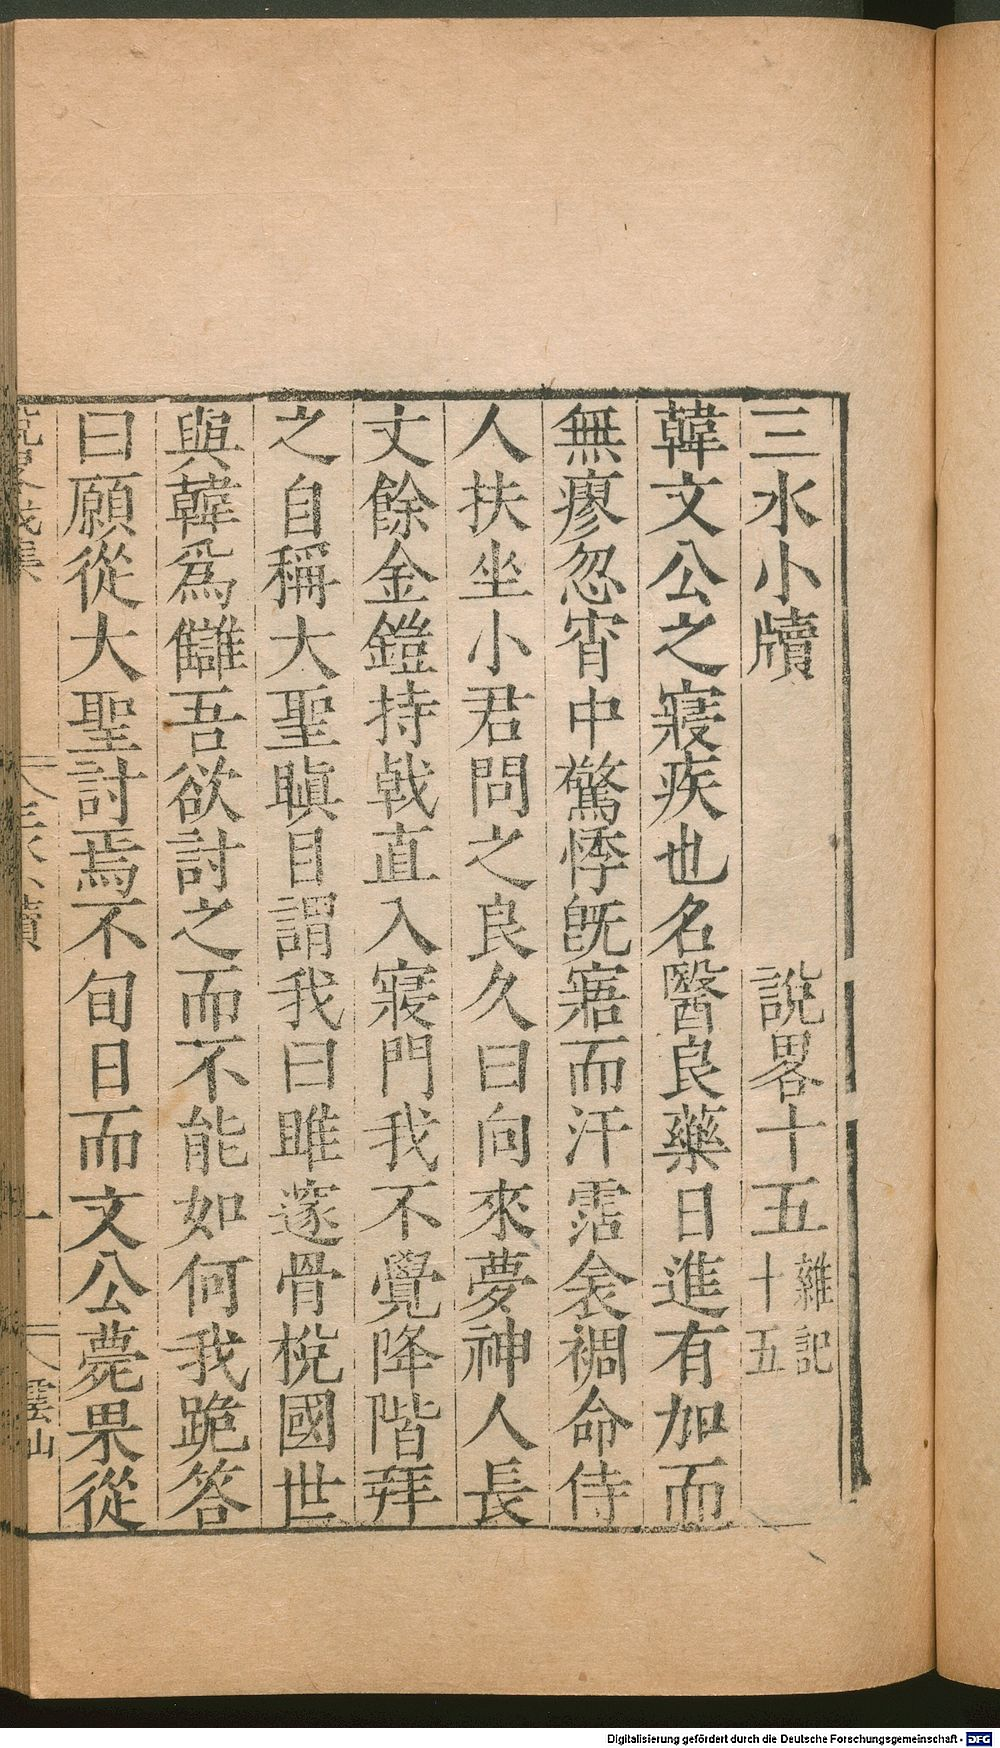 三水小牘 說畧十五 雜記十五
韓文公之寢疾也名醫良藥日進有加而
無瘳忽宵中驚悸旣寤而汗霑衾裯命侍
人扶坐小君問之良久曰向來夢神人長
丈餘金鎧持戟直入寢門我不覺降階拜
之自稱大聖瞋目謂我曰睢邃骨梲國世
與韓爲讎吾欲討之而不能如何我跪答
曰願從大聖討焉不旬日而文公薨果從
Digitalisierung gefördert durch die Deutsche Forschungsgemeinschaft - DFG